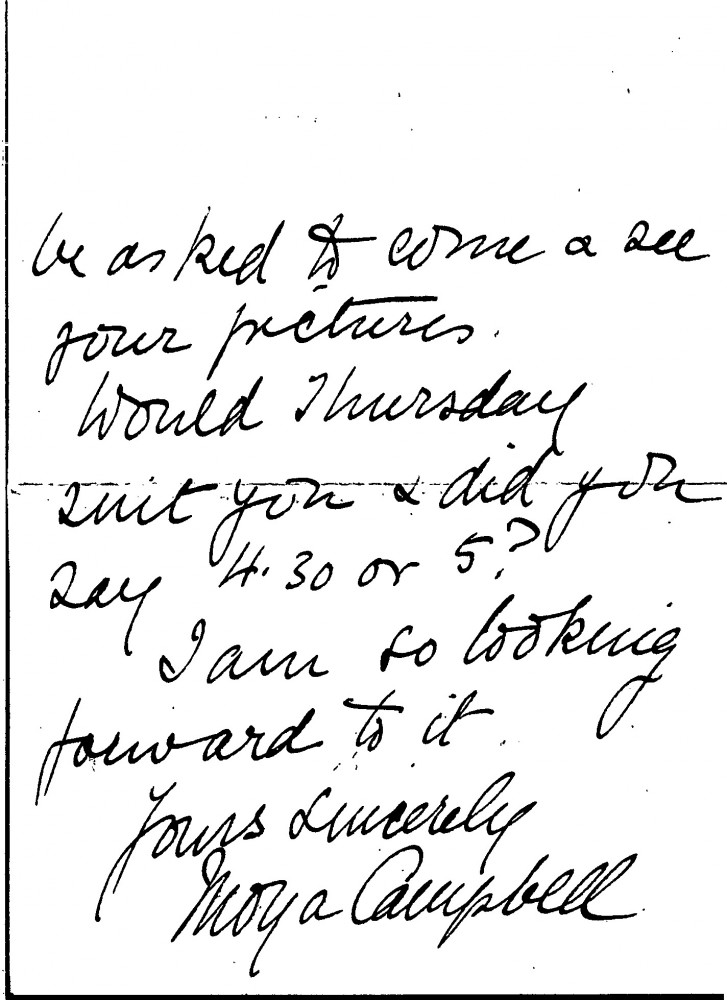 be asked to come & see
your pictures.
Would Thursday
suit you & did you
say 4.30 or 5?
I am so looking
forward to it.
Yours sincerely
Moya Campbell